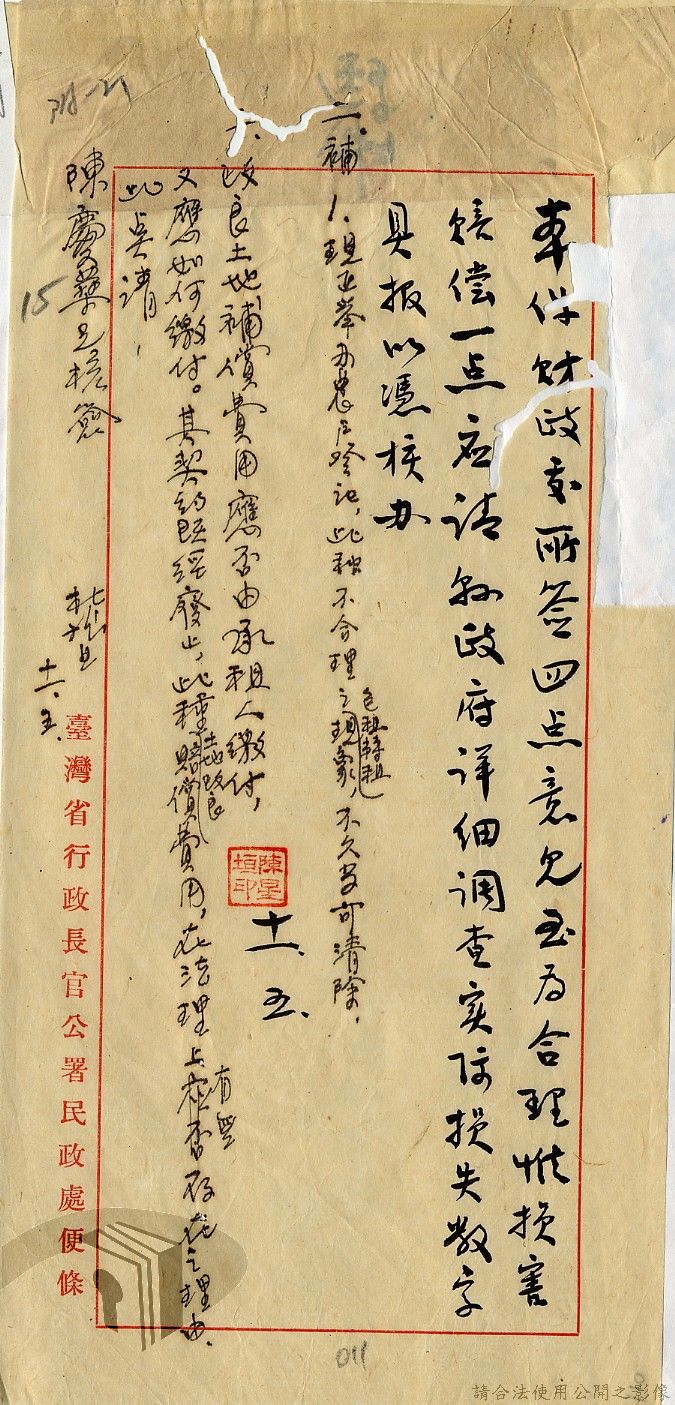 本件財政處所簽四点意見至为合理惟損害
賠偿一点应請縣政府详细调查实际损失数字
具报以憑核办
二、補1.現正举办農户登記，此種不合理之現象，不久當可清除。
包租轉租
一、改良土地補償費用應否由承租人繳付，
又應如何繳付。其契約既經廢止，此種賠償費用，在法理上有無存在之理由。
土地改良
此点請，
陳慶華兄核簽
十一、五、
陳星垣印
十一、五、
15
臺灣省行政長官公署民政處便條
011
請合法使用公開之影像